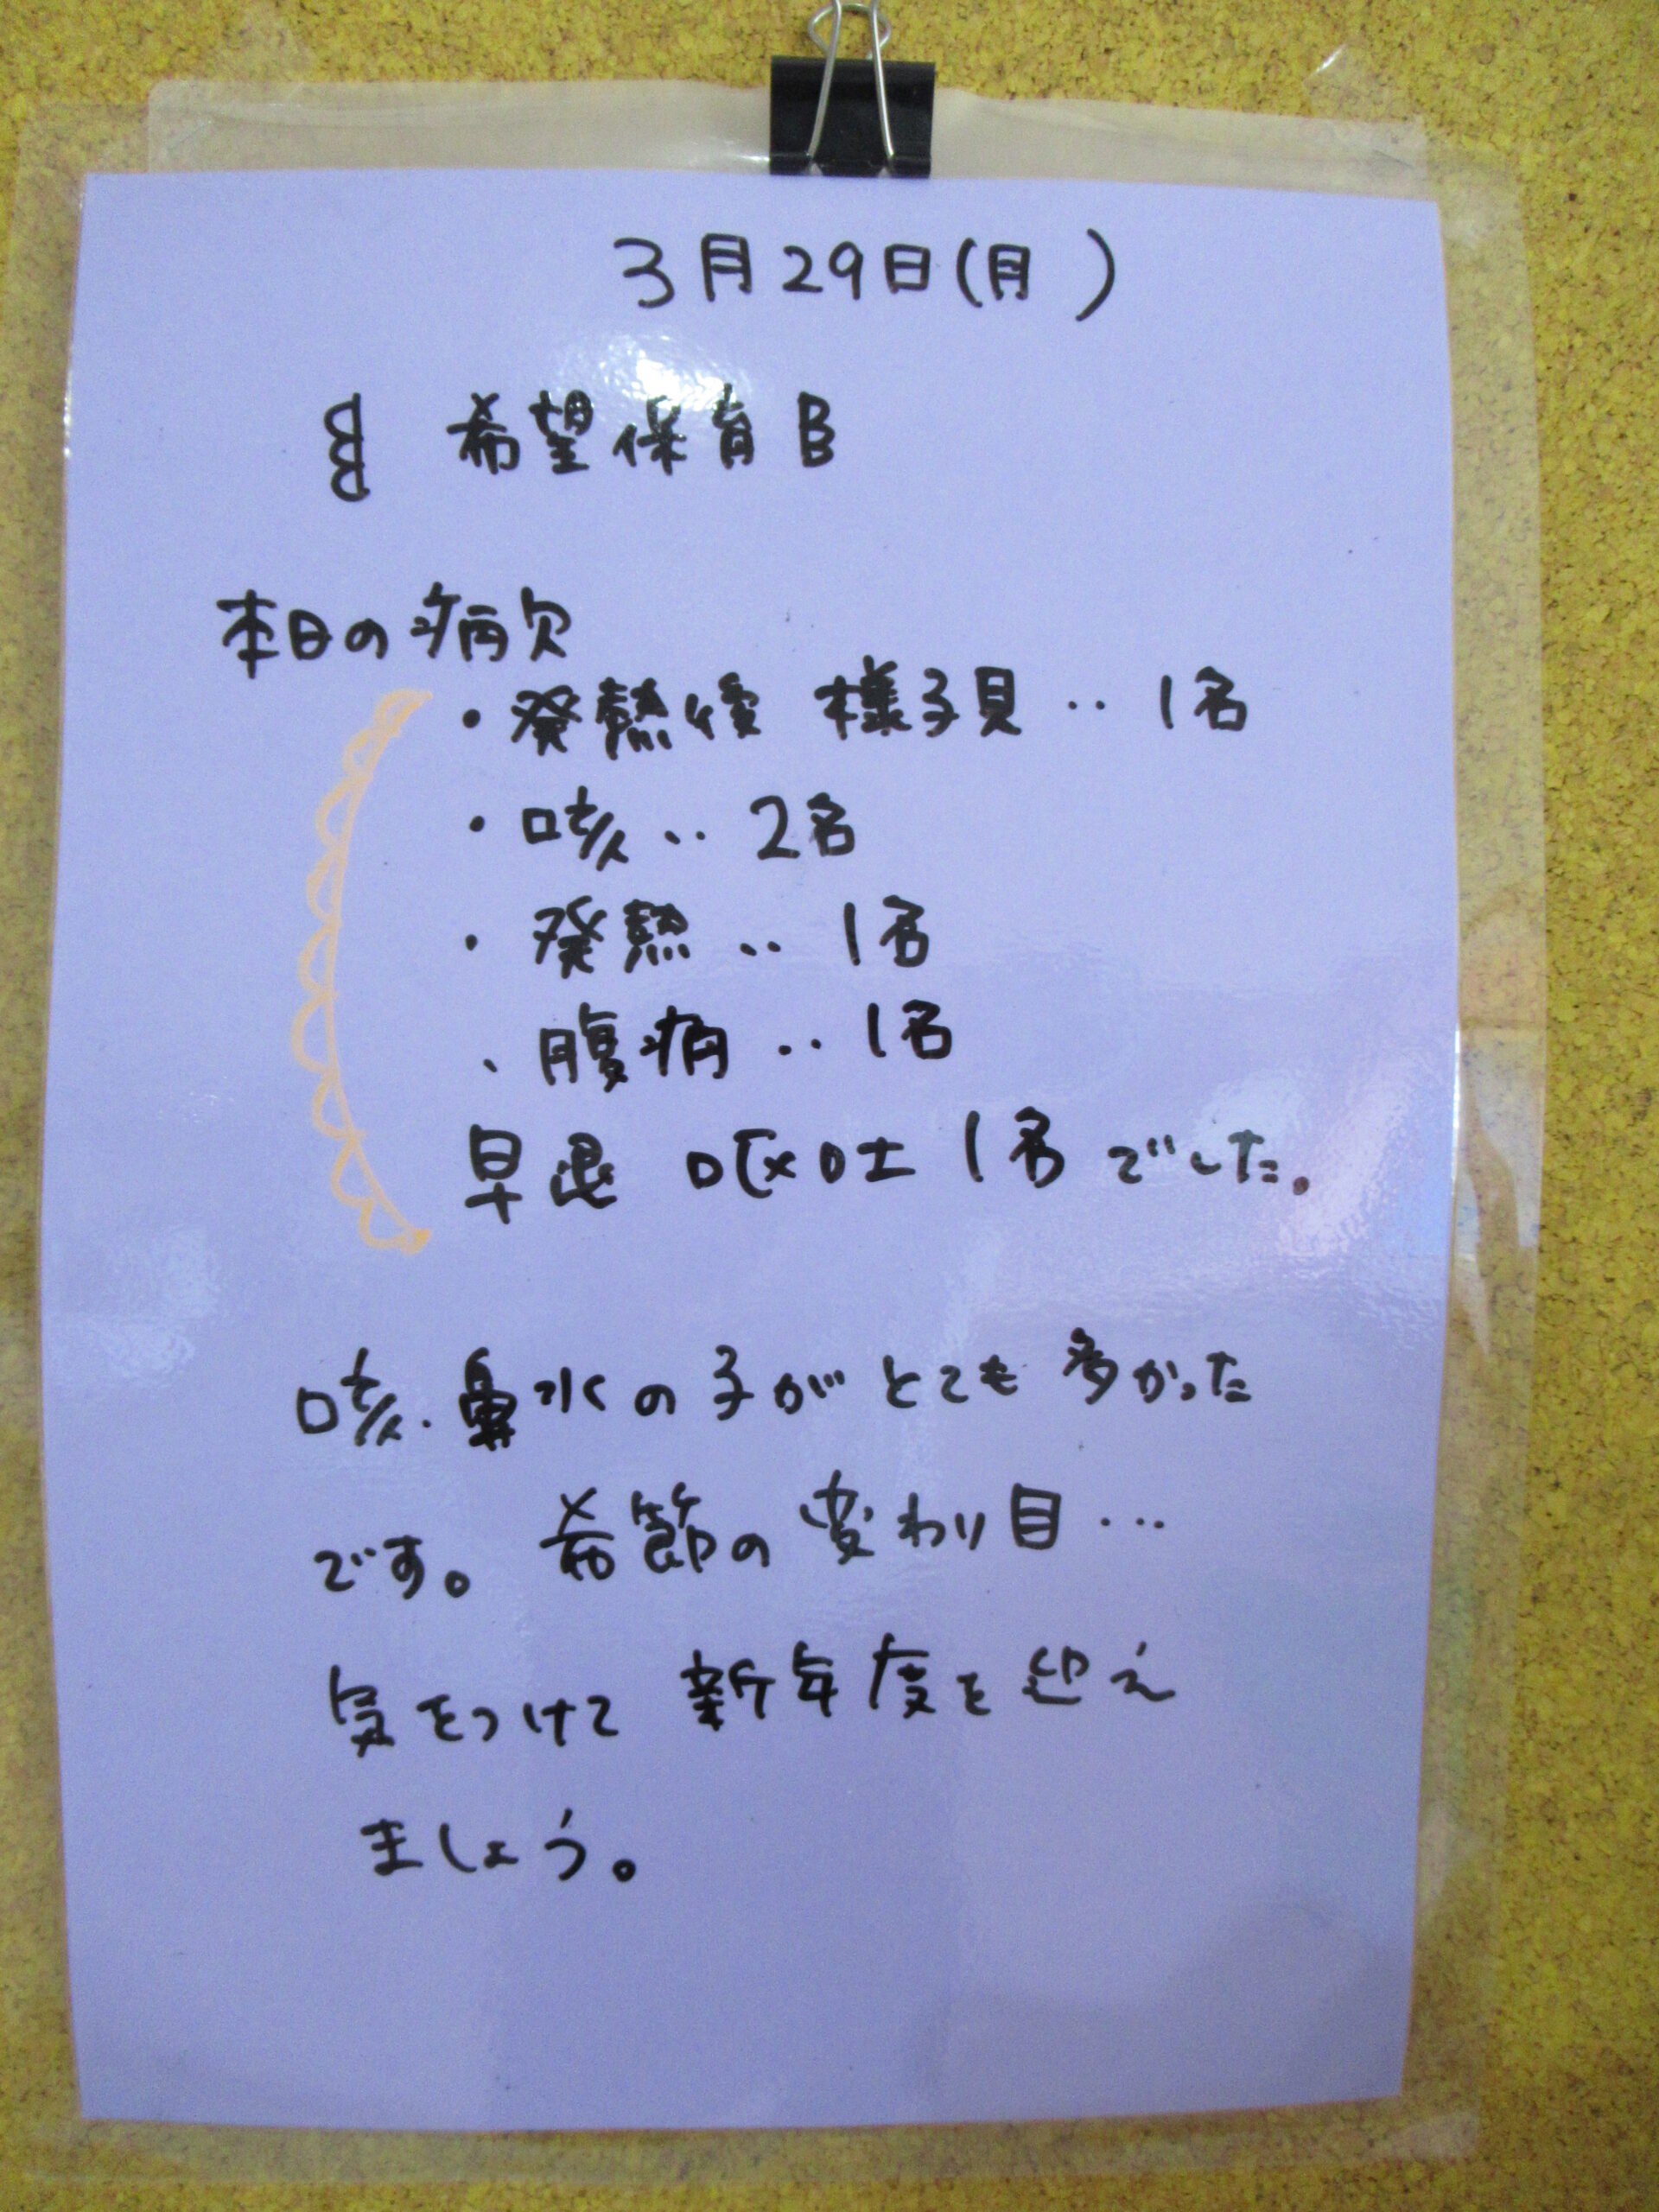 3月29日(月 )
B 希望保育B
本日の病欠
・発熱後 様子見‥1名
・咳‥2名
・発熱‥1名
・腹痛‥1名
早退 嘔吐 1名でした。
咳・鼻水の子がとても多かった
です。季節の変わり目…
気をつけて新年度を迎え
ましょう。